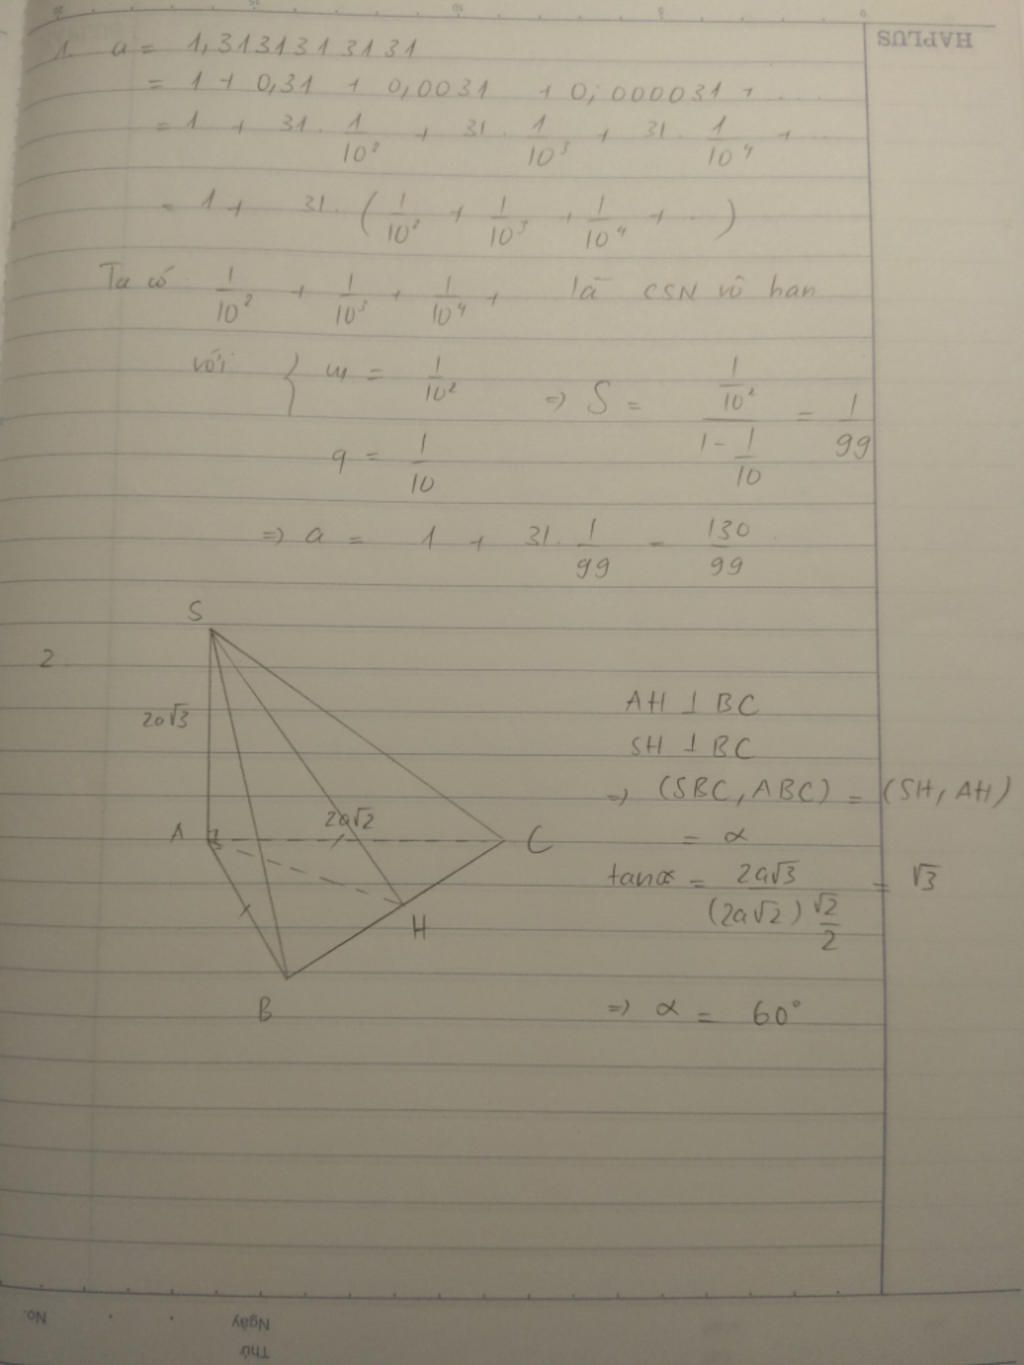 HAPLUS
1. a = 1,3131313131
= 1 + 0,31 + 0,0031 + 0,000031 + ...
= 1 + 31. 1/10² + 31. 1/10³ + 31. 1/10⁴ + ...
= 1 + 31. (1/10² + 1/10³ + 1/10⁴ + ...)
Ta có 1/10² + 1/10³ + 1/10⁴ + là CSN vô hạn
với { u₁ = 1/10² => S = (1/10²)/(1 - 1/10) = 1/99
q = 1/10
=> a = 1 + 31. 1/99 = 130/99
2
S
2a√3
A
2a√2
C
H
B
AH ⊥ BC
SH ⊥ BC
=> (SBC, ABC) = (SH, AH)
= α
tanα = 2a√3/((2a√2) √2/2) = √3
=> α = 60°
No.
Ngày
Thứ